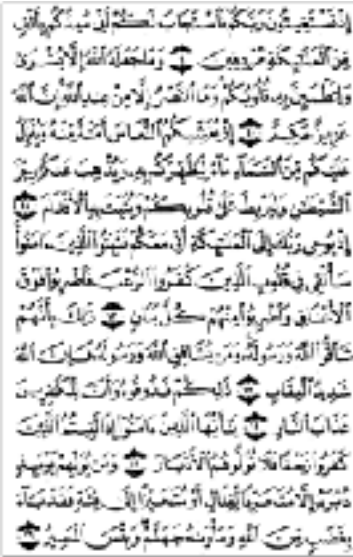 إِذْ تَسْتَغِيثُونَ رَبَّكُمْ فَاسْتَجَابَ لَكُمْ أَنِّي مُمِدُّكُم بِأَلْفٍ
مِّنَ الْمَلَائِكَةِ مُرْدِفِينَ ۝ وَمَا جَعَلَهُ اللَّهُ إِلَّا بُشْرَىٰ
وَلِتَطْمَئِنَّ بِهِ قُلُوبُكُمْ وَمَا النَّصْرُ إِلَّا مِنْ عِندِ اللَّهِ إِنَّ اللَّهَ
عَزِيزٌ حَكِيمٌ ۝ إِذْ يُغَشِّيكُمُ النُّعَاسَ أَمَنَةً مِّنْهُ وَيُنَزِّلُ
عَلَيْكُم مِّنَ السَّمَاءِ مَاءً لِّيُطَهِّرَكُم بِهِ وَيُذْهِبَ عَنكُمْ رِجْزَ
الشَّيْطَانِ وَلِيَرْبِطَ عَلَىٰ قُلُوبِكُمْ وَيُثَبِّتَ بِهِ الْأَقْدَامَ ۝
إِذْ يُوحِي رَبُّكَ إِلَى الْمَلَائِكَةِ أَنِّي مَعَكُمْ فَثَبِّتُوا الَّذِينَ آمَنُوا
سَأُلْقِي فِي قُلُوبِ الَّذِينَ كَفَرُوا الرُّعْبَ فَاضْرِبُوا فَوْقَ
الْأَعْنَاقِ وَاضْرِبُوا مِنْهُمْ كُلَّ بَنَانٍ ۝ ذَٰلِكَ بِأَنَّهُمْ
شَاقُّوا اللَّهَ وَرَسُولَهُ وَمَن يُشَاقِقِ اللَّهَ وَرَسُولَهُ فَإِنَّ اللَّهَ
شَدِيدُ الْعِقَابِ ۝ ذَٰلِكُمْ فَذُوقُوهُ وَأَنَّ لِلْكَافِرِينَ
عَذَابَ النَّارِ ۝ يَا أَيُّهَا الَّذِينَ آمَنُوا إِذَا لَقِيتُمُ الَّذِينَ
كَفَرُوا زَحْفًا فَلَا تُوَلُّوهُمُ الْأَدْبَارَ ۝ وَمَن يُوَلِّهِمْ يَوْمَئِذٍ
دُبُرَهُ إِلَّا مُتَحَرِّفًا لِّقِتَالٍ أَوْ مُتَحَيِّزًا إِلَىٰ فِئَةٍ فَقَدْ بَاءَ
بِغَضَبٍ مِّنَ اللَّهِ وَمَأْوَاهُ جَهَنَّمُ وَبِئْسَ الْمَصِيرُ ۝